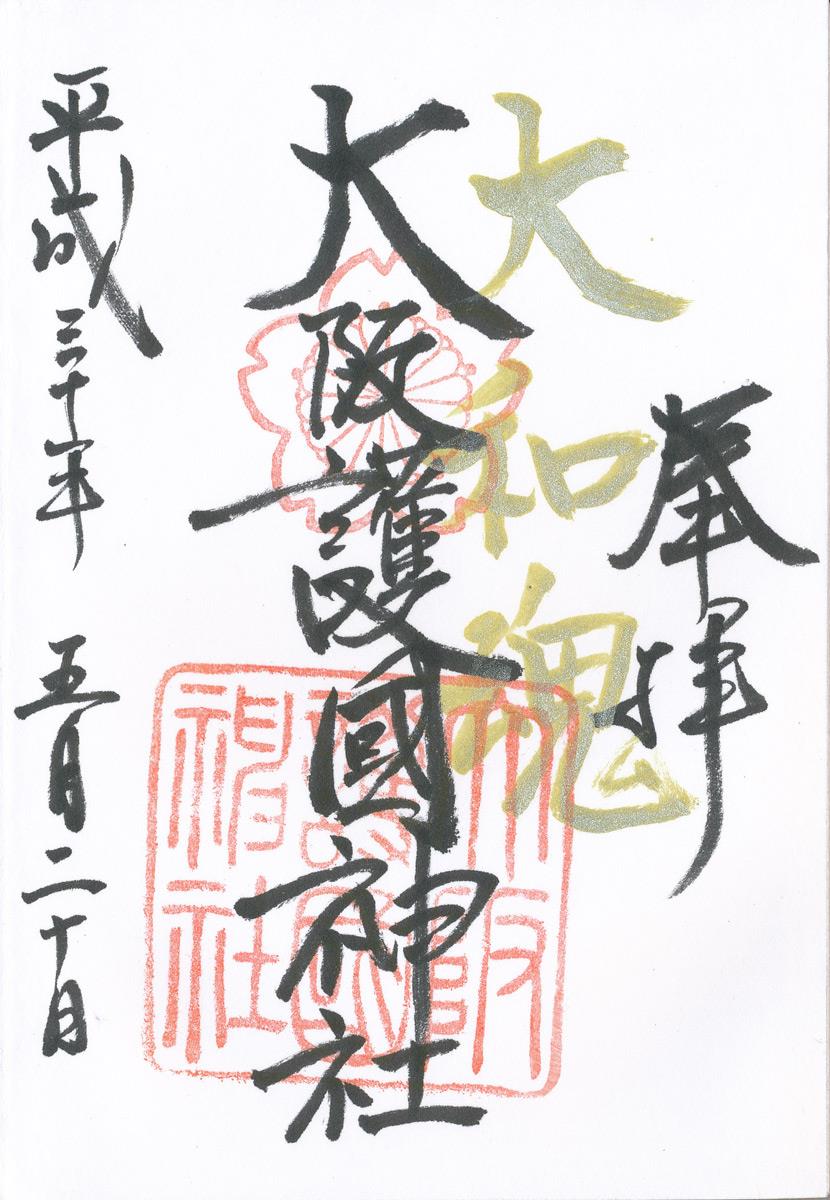 奉拝
大和魂
大阪護國神社
大阪護國神社
平成三十年 五月二十月